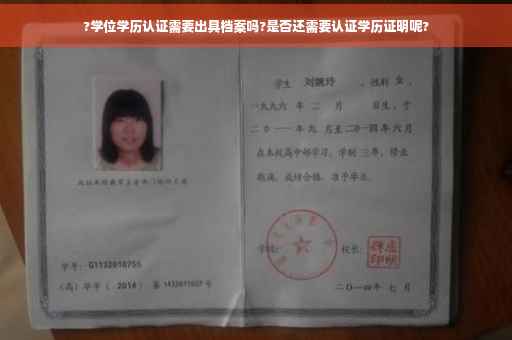 ?学位学历认证需要出具档案吗?是否还需要认证学历证明呢?
学生 刘婉玲 ，性别 女 ，
一九九六 年 二 月 日生，于
二〇一一年九 月至二〇一四年六月
在本校高中部学习，学制 三年，修业
期满，成绩合格，准予毕业。
学校： 校长：
学号： G1132010755
（高）毕字（ 2014 ）第 1432011027 号
二〇一四年 七 月